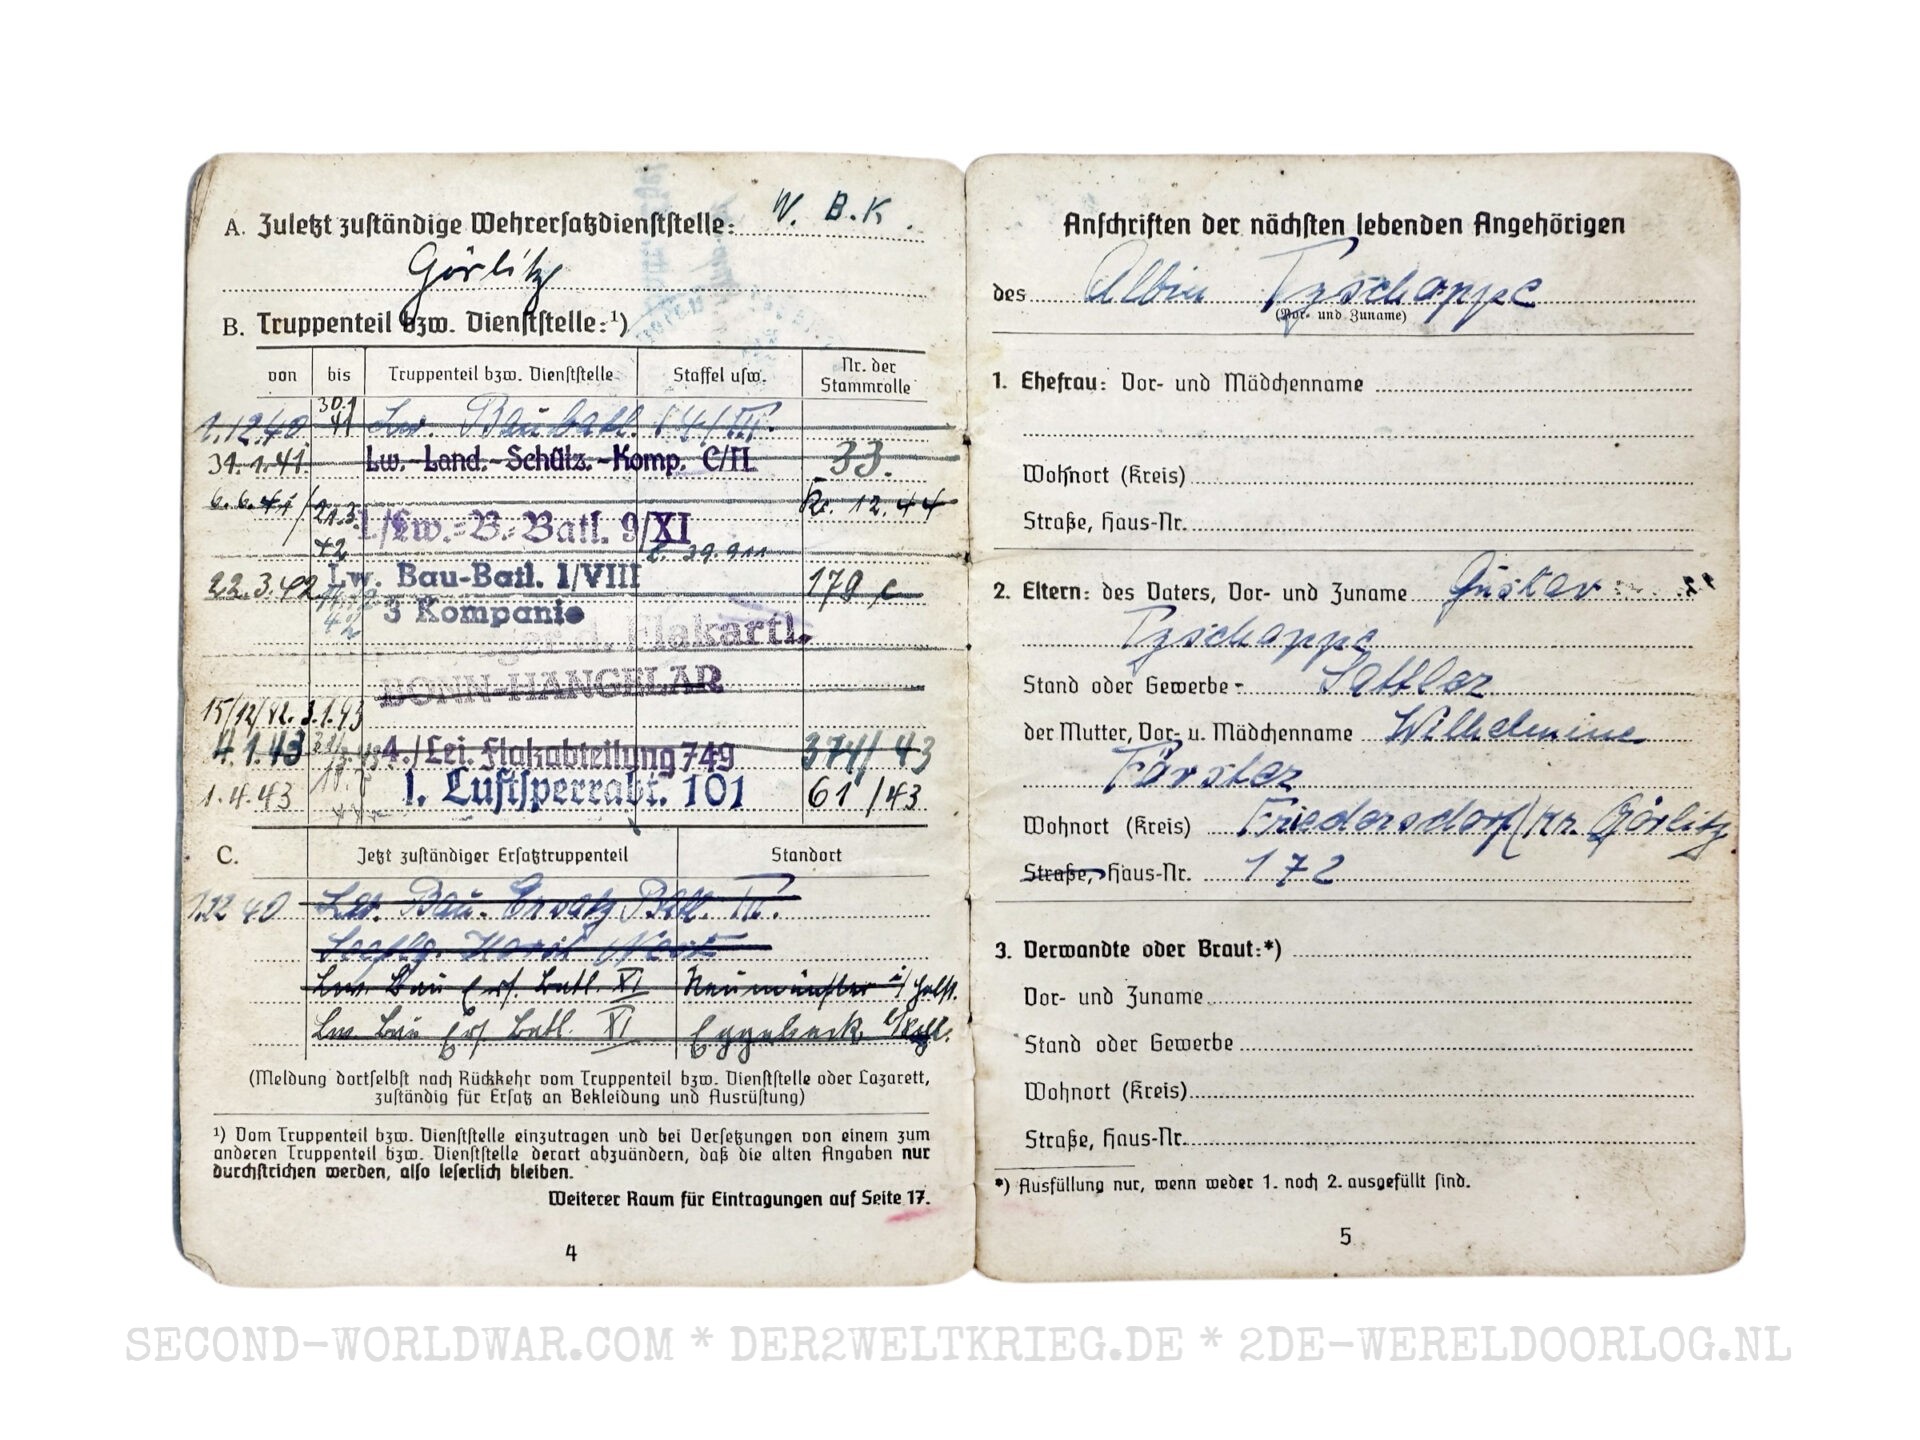 A. Zuletzt zuständige Wehrersatzdienststelle: W. B. K.
Görlitz
B. Truppenteil bzw. Dienststelle:¹)
von bis Truppenteil bzw. Dienststelle Staffel usw. Nr. der Stammrolle
1.12.40. 30.1 41 Lw. Baubatl.
31.1.41. Lw.-Land.-Schütz.-Komp. C/II 33.
6.6.41 / 21.3. 42 1./Lw.-B.-Batl. 9/XI 12.44
22.3.42 Lw. Bau-Batl. 1/VIII 179
3 Kompanie
d. Flakartl.
BONN-HANGELAR
15/12/42. 3.1.43
4.1.43 4./Lei. Flakabteilung 749 374/43
1.4.43 1. Luftsperrabt. 101 61/43
C. Jetzt zuständiger Ersatztruppenteil Standort
1.12 40 Lw. Bau. Ersatz Batl.
Lw. Bau Ers. Batl. XI Neumünster i/Holst.
Lw Bau Ers Batl. XI Eggebeck
(Meldung dortselbst nach Rückkehr vom Truppenteil bzw. Dienststelle oder Lazarett,
zuständig für Ersatz an Bekleidung und Ausrüstung)
¹) Vom Truppenteil bzw. Dienststelle einzutragen und bei Versetzungen von einem zum
anderen Truppenteil bzw. Dienststelle derart abzuändern, daß die alten Angaben nur
durchstrichen werden, also leserlich bleiben.
Weiterer Raum für Eintragungen auf Seite 17.
4
Anschriften der nächsten lebenden Angehörigen
des Albin Tzschoppe
(Vor- und Zuname)
1. Ehefrau: Vor- und Mädchenname
Wohnort (Kreis)
Straße, Haus-Nr.
2. Eltern: des Vaters, Vor- und Zuname Gustav
Tzschoppe
Stand oder Gewerbe - Sattler
der Mutter, Vor- u. Mädchenname Wilhelmine
Förster
Wohnort (Kreis) Friedersdorf/Kr. Görlitz
Straße, Haus-Nr. 172
3. Verwandte oder Braut:*)
Vor- und Zuname
Stand oder Gewerbe
Wohnort (Kreis)
Straße, Haus-Nr.
*) Ausfüllung nur, wenn weder 1. noch 2. ausgefüllt sind.
5
SECOND-WORLDWAR.COM * DER2WELTKRIEG.DE * 2DE-WERELDOORLOG.NL